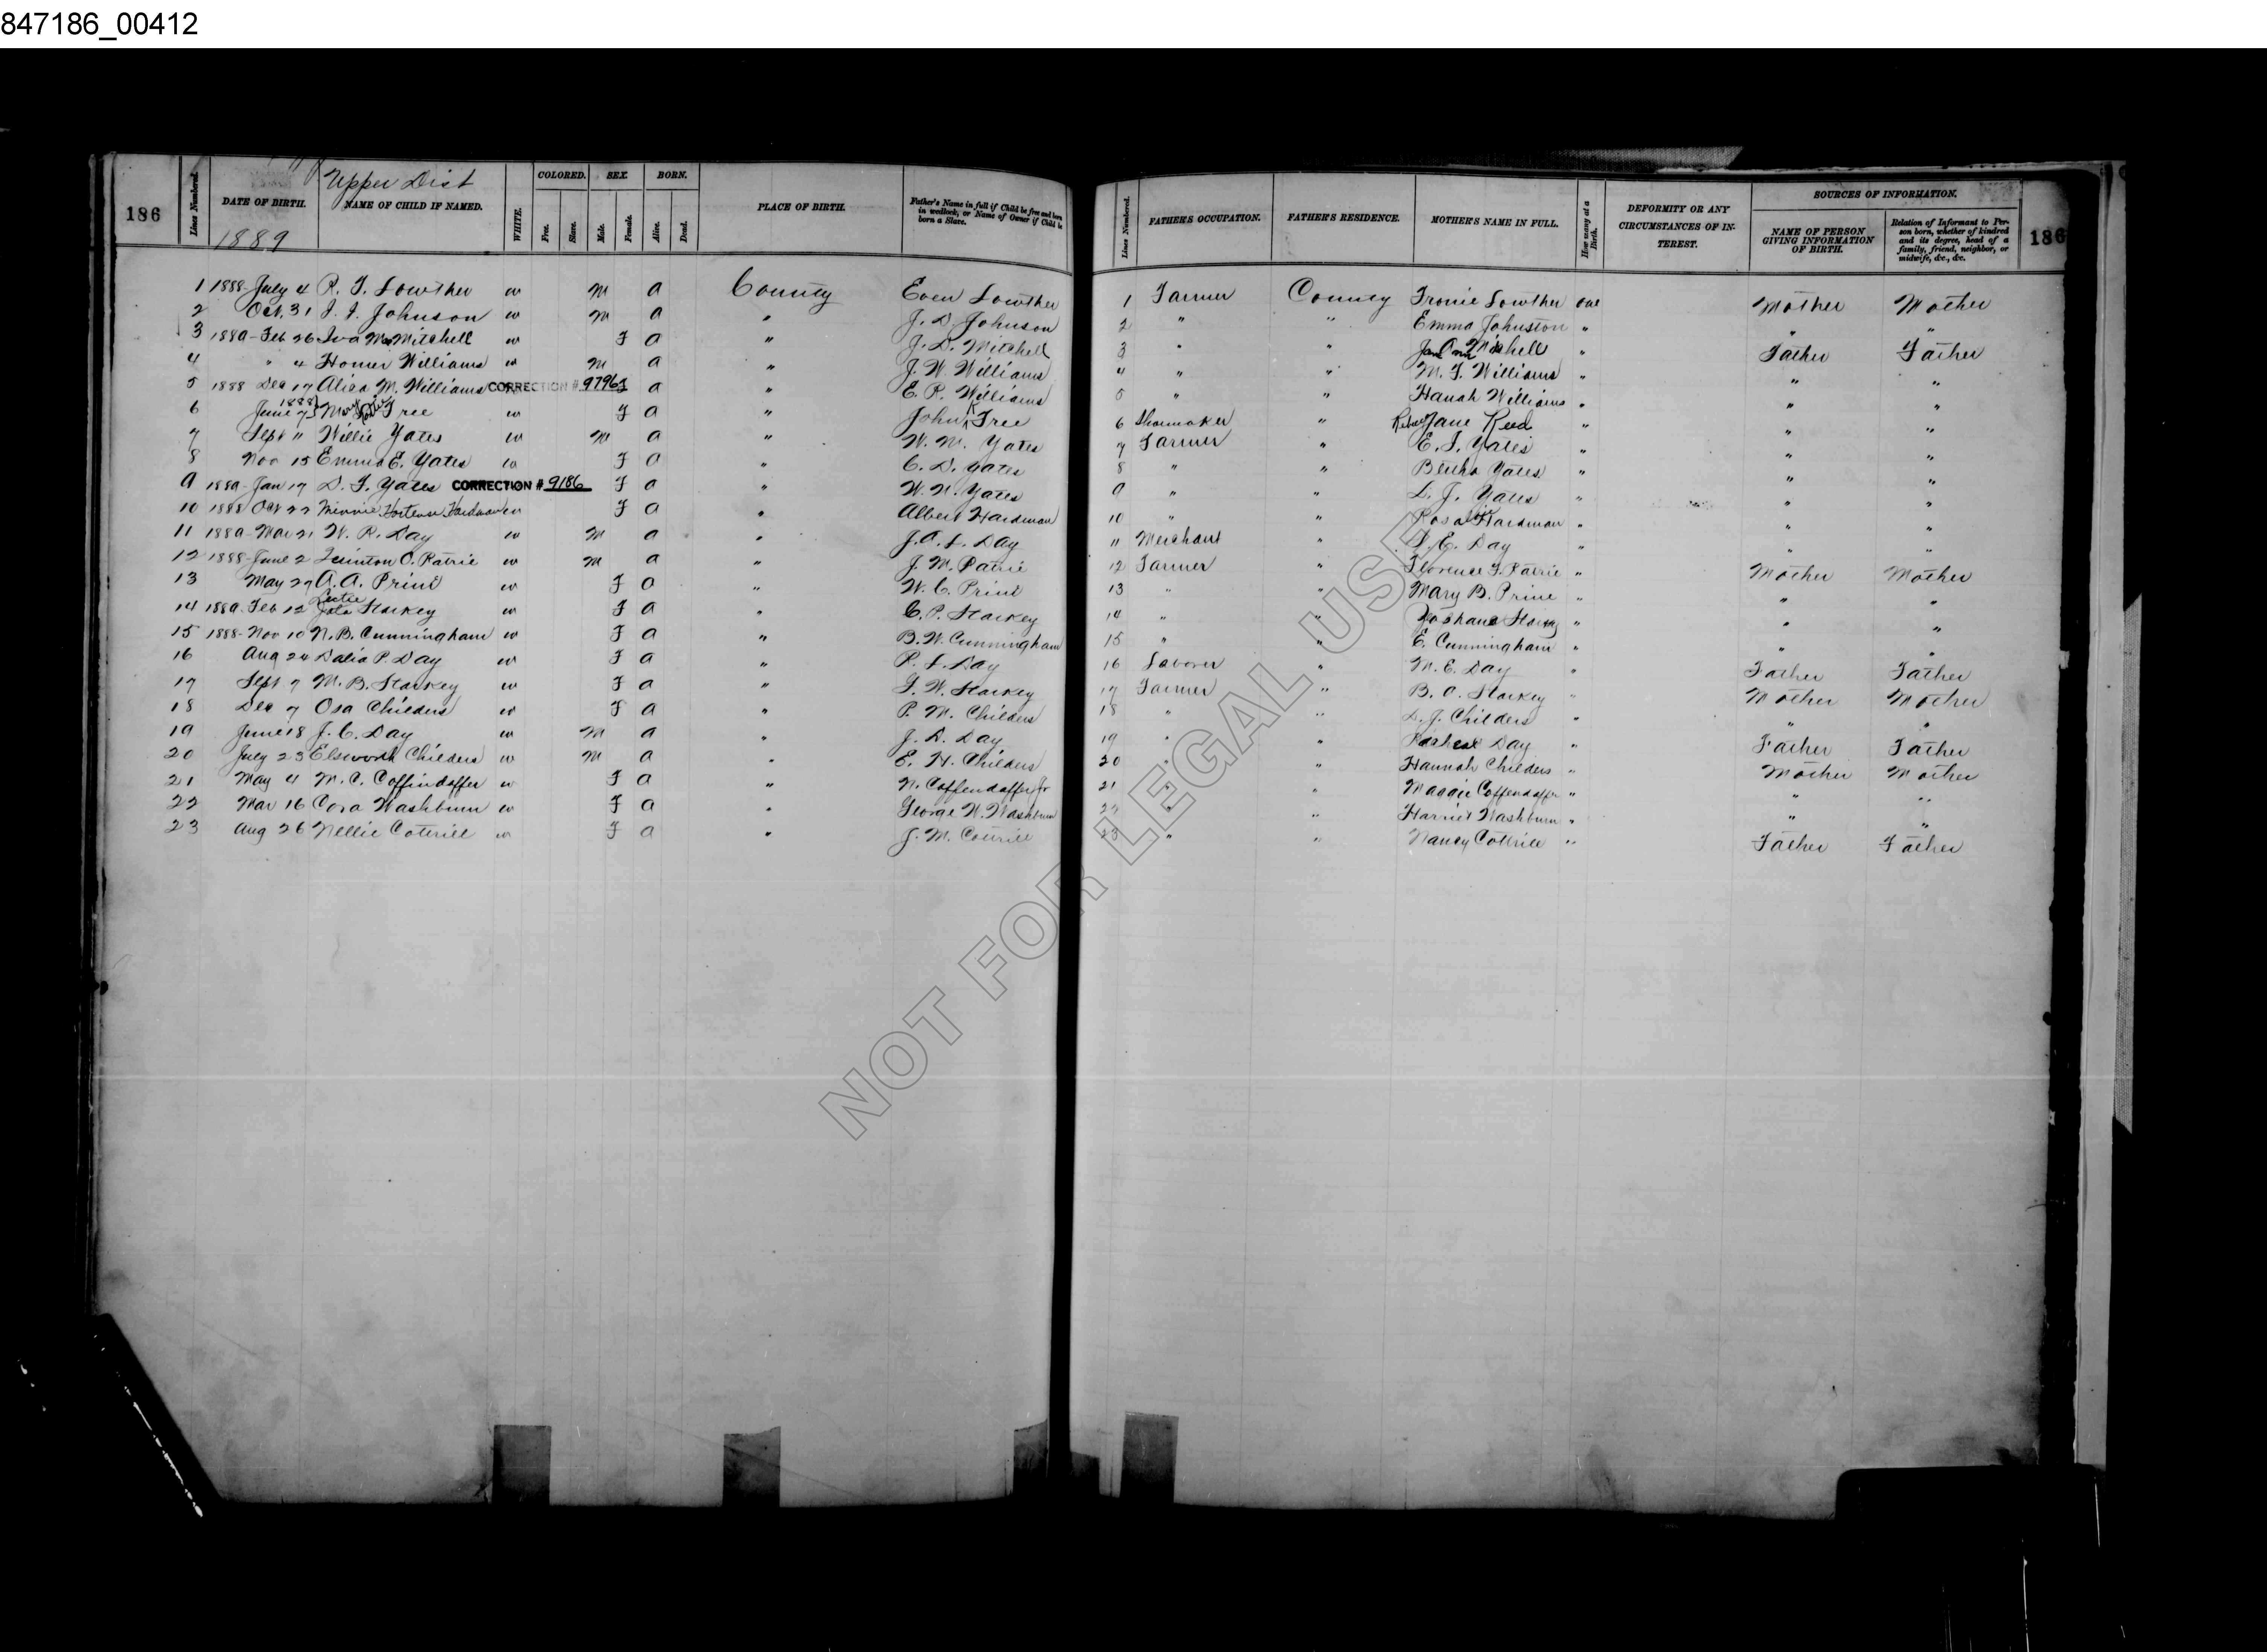 847186_00412
186
Upper Dist
1889
Lines Numbered.
DATE OF BIRTH.
NAME OF CHILD IF NAMED.
WHITE.
COLORED.
Free.
Slave.
SEX.
Male.
Female.
BORN.
Alive.
Dead.
PLACE OF BIRTH.
Father's Name in full if Child be free and born in wedlock, or Name of Owner if Child be born a Slave.
Lines Numbered.
FATHER'S OCCUPATION.
FATHER'S RESIDENCE.
MOTHER'S NAME IN FULL.
How many at a Birth.
DEFORMITY OR ANY CIRCUMSTANCES OF INTEREST.
SOURCES OF INFORMATION.
NAME OF PERSON GIVING INFORMATION OF BIRTH.
Relation of Informant to Person born, whether of kindred and its degree, head of a family, friend, neighbor, or midwife, &c., &c.
186
1 1888 July 4 R. F. Lowther w M a County Even Lowther 1 Farmer County Fronie Lowther one Mother Mother
2 Oct. 31 J. J. Johnson w M a " J. D. Johnson 2 " " Emma Johnston " " "
3 1889 - Feb 26 Iva M Mitchell w F a " J. D. Mitchell 3 " " Jane Ann Mitchell " Father Father
4 " 4 Homer Williams w M a " J. W. Williams 4 " " M. F. Williams " " "
5 1888 Dec 17 Alisa M. Williams CORRECTION # 9796 F a " E. R. Williams 5 " " Hanah Williams " " "
6 1888 June 75 Mary Free w F a " John K Free 6 Shoemaker " Jane Reed " " "
7 Sept 11 Willie Yates w M a " W. M. Yates 7 Farmer " E. J. Yates " " "
8 Nov 15 Emma E. Yates w F a " C. D. Yates 8 " " Bertha Yates " " "
9 1889 - Jan 17 D. F. Yates CORRECTION # 9186 F a " W. N. Yates 9 " " L. J. Yates " " "
10 1888 Oct 22 Minnie Hortense Hardman w F a " Albert Hardman 10 " " Rosalie Hardman " " "
11 1889 - Mar 21 W. R. Day w M a " J. A. L. Day 11 Merchant " L. E. Day " " "
12 1888 - June 2 Quinton O. Patrie w M a " J. M. Patrie 12 Farmer " Florence F. Patrie " Mother Mother
13 May 27 A. A. Prine w F a " W. C. Prine 13 " " Mary B. Prine " " "
14 1889. Feb 12 Starkey w F a " C. P. Starkey 14 " " " " "
15 1888 - Nov 10 N. B. Cunningham w F a " B. W. Cunningham 15 " " E. Cunningham " " "
16 Aug 24 Dalia P. Day w F a " P. L. Day 16 Laborer " M. E. Day " Father Father
17 Sept 7 M. B. Starkey w F a " F. W. Starkey 17 Farmer " B. A. Starkey " Mother Mother
18 Dec 7 Osa Childers w F a " P. M. Childers 18 " " L. J. Childers " " "
19 June 18 J. C. Day w M a " J. D. Day 19 " " Day Father Father
20 July 23 Elsworth Childers w M a " E. H. Childers 20 " " Hannah Childers " Mother Mother
21 May 4 M. C. Coffindaffer w F a " N. Coffendaffer Jr 21 " " Maggie Coffendaffer " " "
22 Mar 16 Cora Washburn w F a " George W. Washburn 22 " " Harriet Washburn " " "
23 Aug 26 Nellie Cottrill w F a " J. M. Cottrill 23 " " Nancy Cottrill " Father Father
NOT FOR LEGAL USE